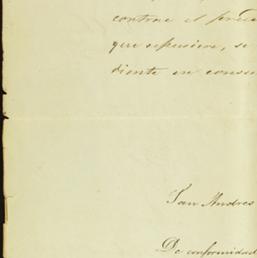 contrae el prece
que expusiere, se
diente en conse
San Andres
De conformidad